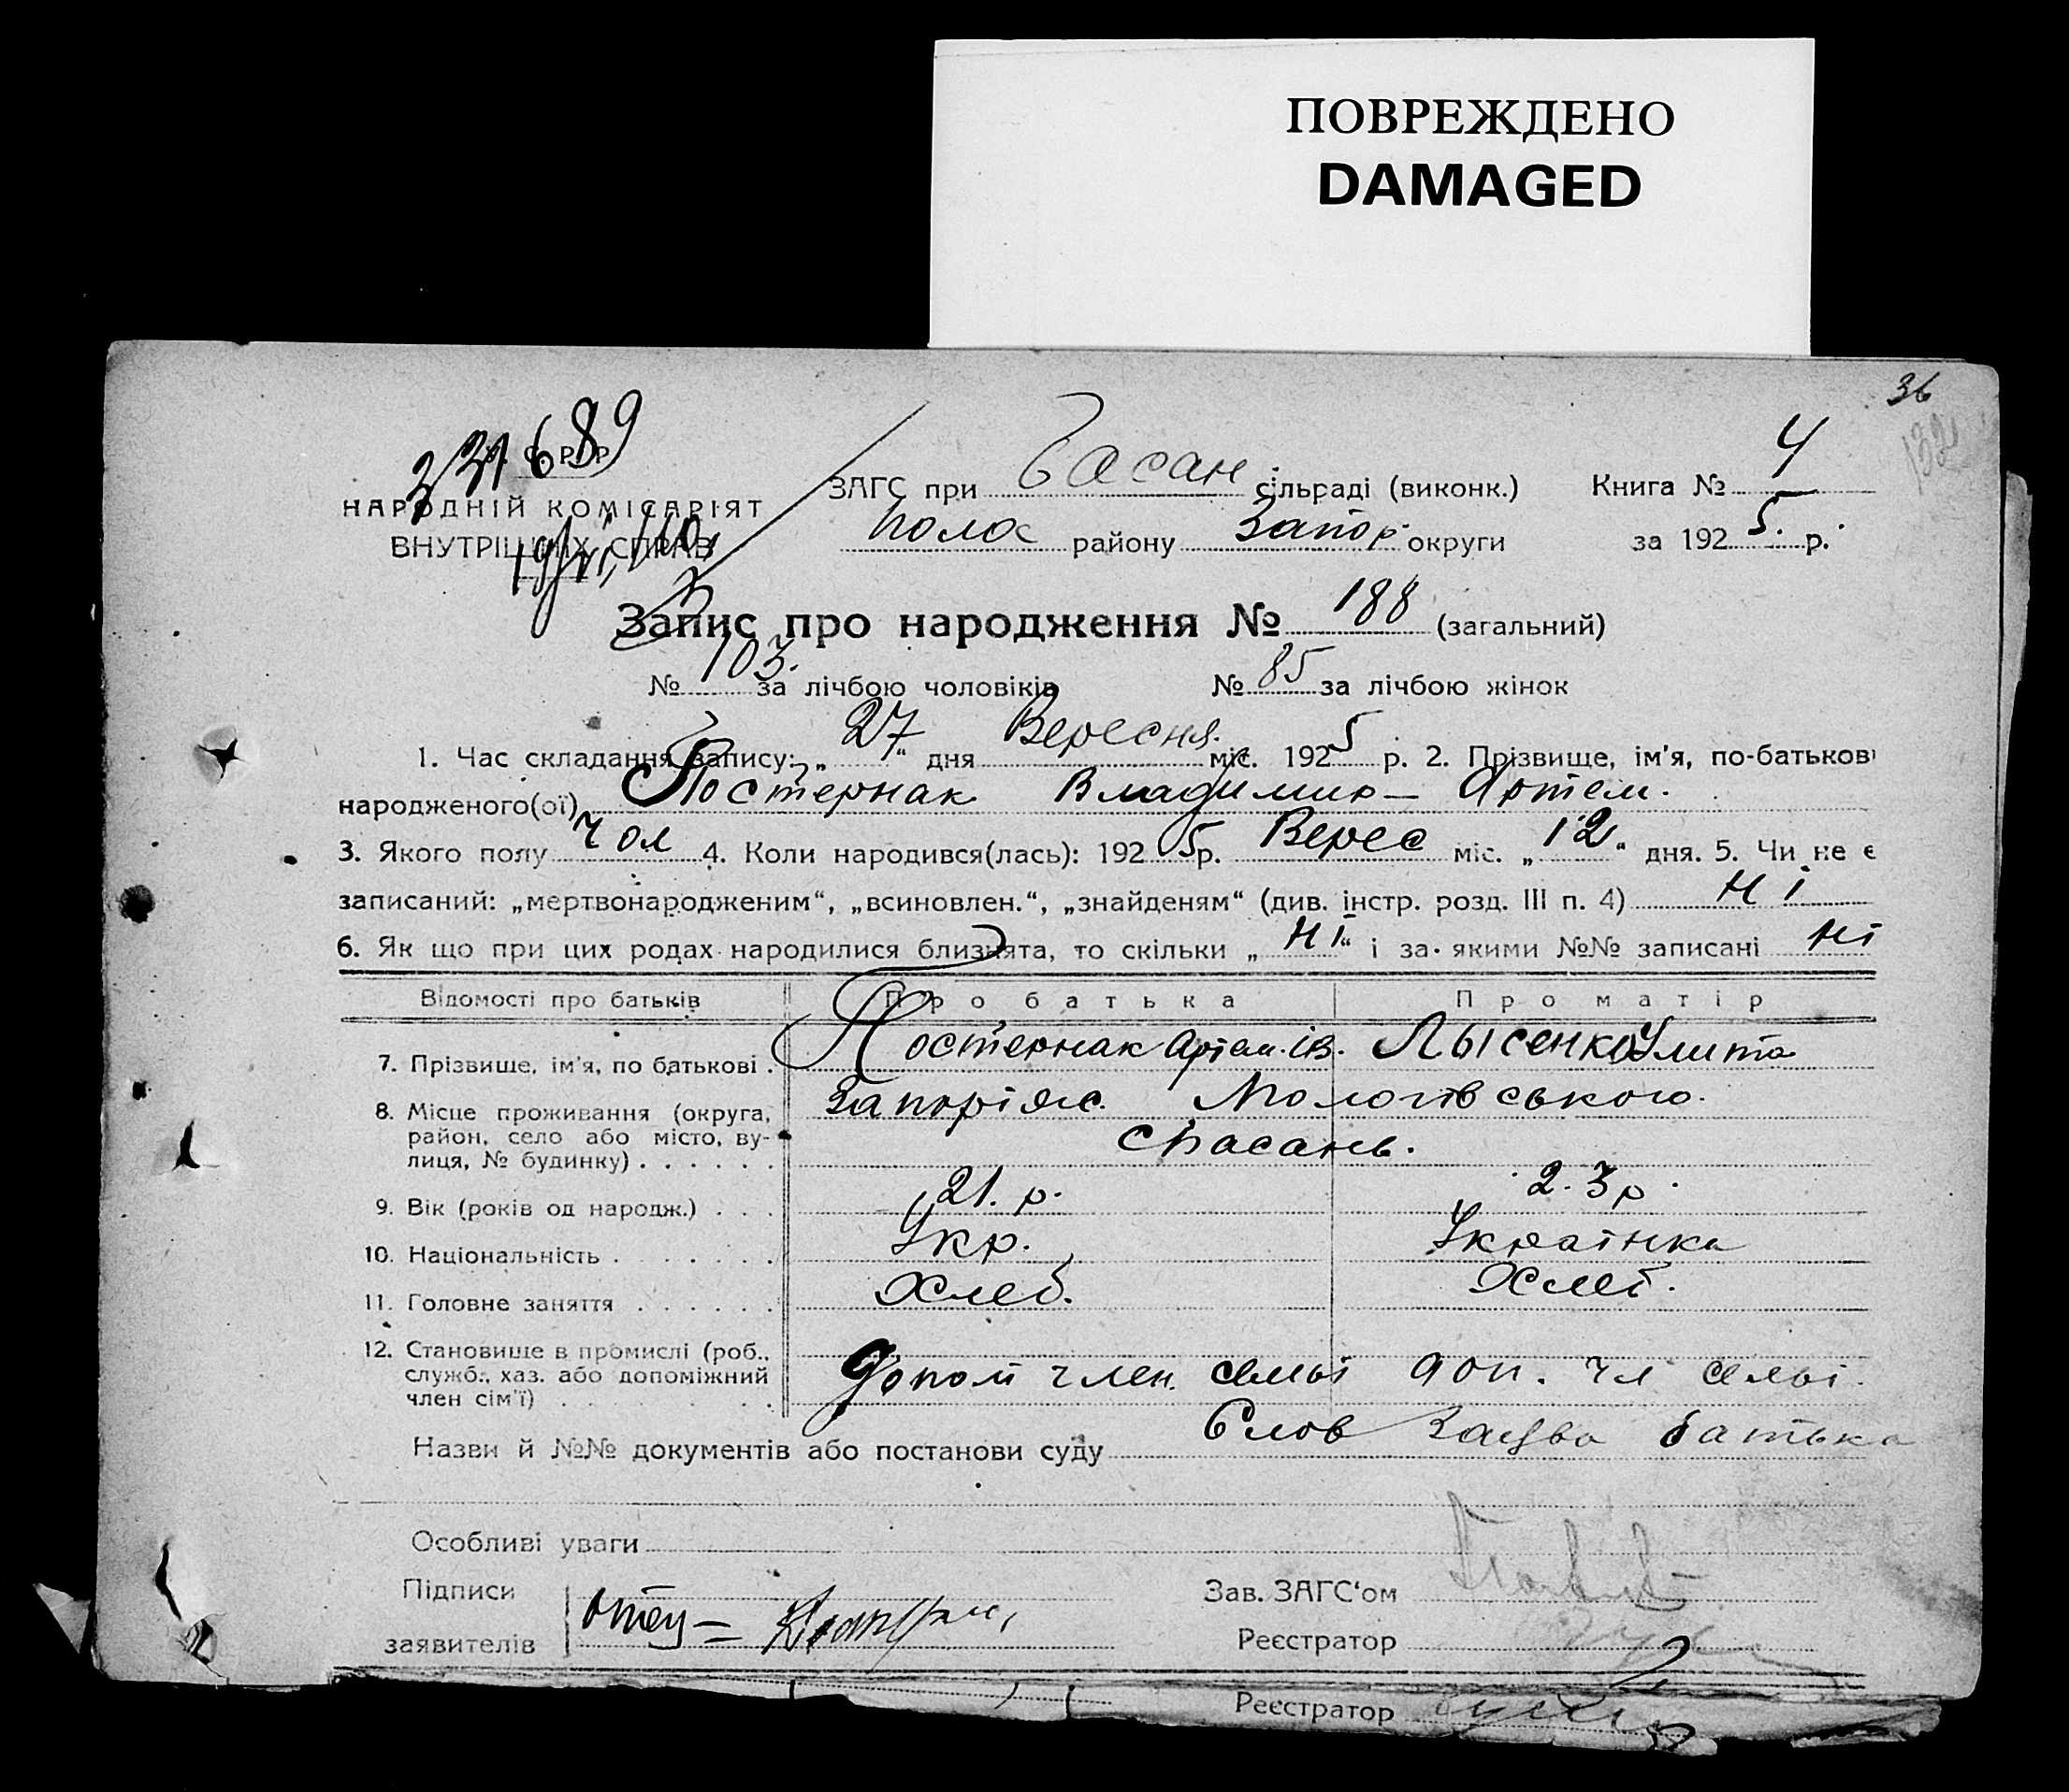 ПОВРЕЖДЕНО
DAMAGED
36
132
331689
У. С. Р. Р.
НАРОДНІЙ КОМІСАРІЯТ
ВНУТРІШНІХ СПРАВ
ЗАГС при Басан сільраді (виконк.) Книга № 4
Полог району Запор. округи за 1925 р.
Запис про народження № 188 (загальний)
№ 103. за лічбою чоловіків № 85 за лічбою жінок
1. Час складання запису: „27“ дня Вересня. міс. 1925 р. 2. Прізвище, ім'я, по-батькові
народженого(ої) Постернак Владимир – Артем.
3. Якого полу Чол 4. Коли народився(лась): 1925 р. Верес міс. „12“ дня. 5. Чи не є
записаний: „мертвонародженим“, „всиновлен.“, „знайденям“ (див. інстр. розд. III п. 4) Ні
6. Як що при цих родах народилися близнята, то скільки „Ні“ і за якими №№ записані Ні
Відомості про батьків Про батька Про матір
7. Прізвище, ім'я, по батькові . Постернак Артем. Ів. Лысенко Улита
8. Місце проживання (округа, Запоріж. Пологівського.
район, село або місто, ву- с Басань.
лиця, № будинку) . . . . . .
9. Вік (років од народж.) . . . 21. р. 23 р.
10. Національність . . . . . . Укр. Українка
11. Головне заняття . . . . . . Хлеб. Хлеб.
12. Становище в промислі (роб.,
служб., хаз. або допоміжний Допом член. семьі доп. чл семьі.
член сім'ї) . . . . . . . .
Назви й №№ документів або постанови суду Слов заява батька
Особливі уваги
Підписи Зав. ЗАГС'ом
заявителів Отец – Реєстратор
Реєстратор